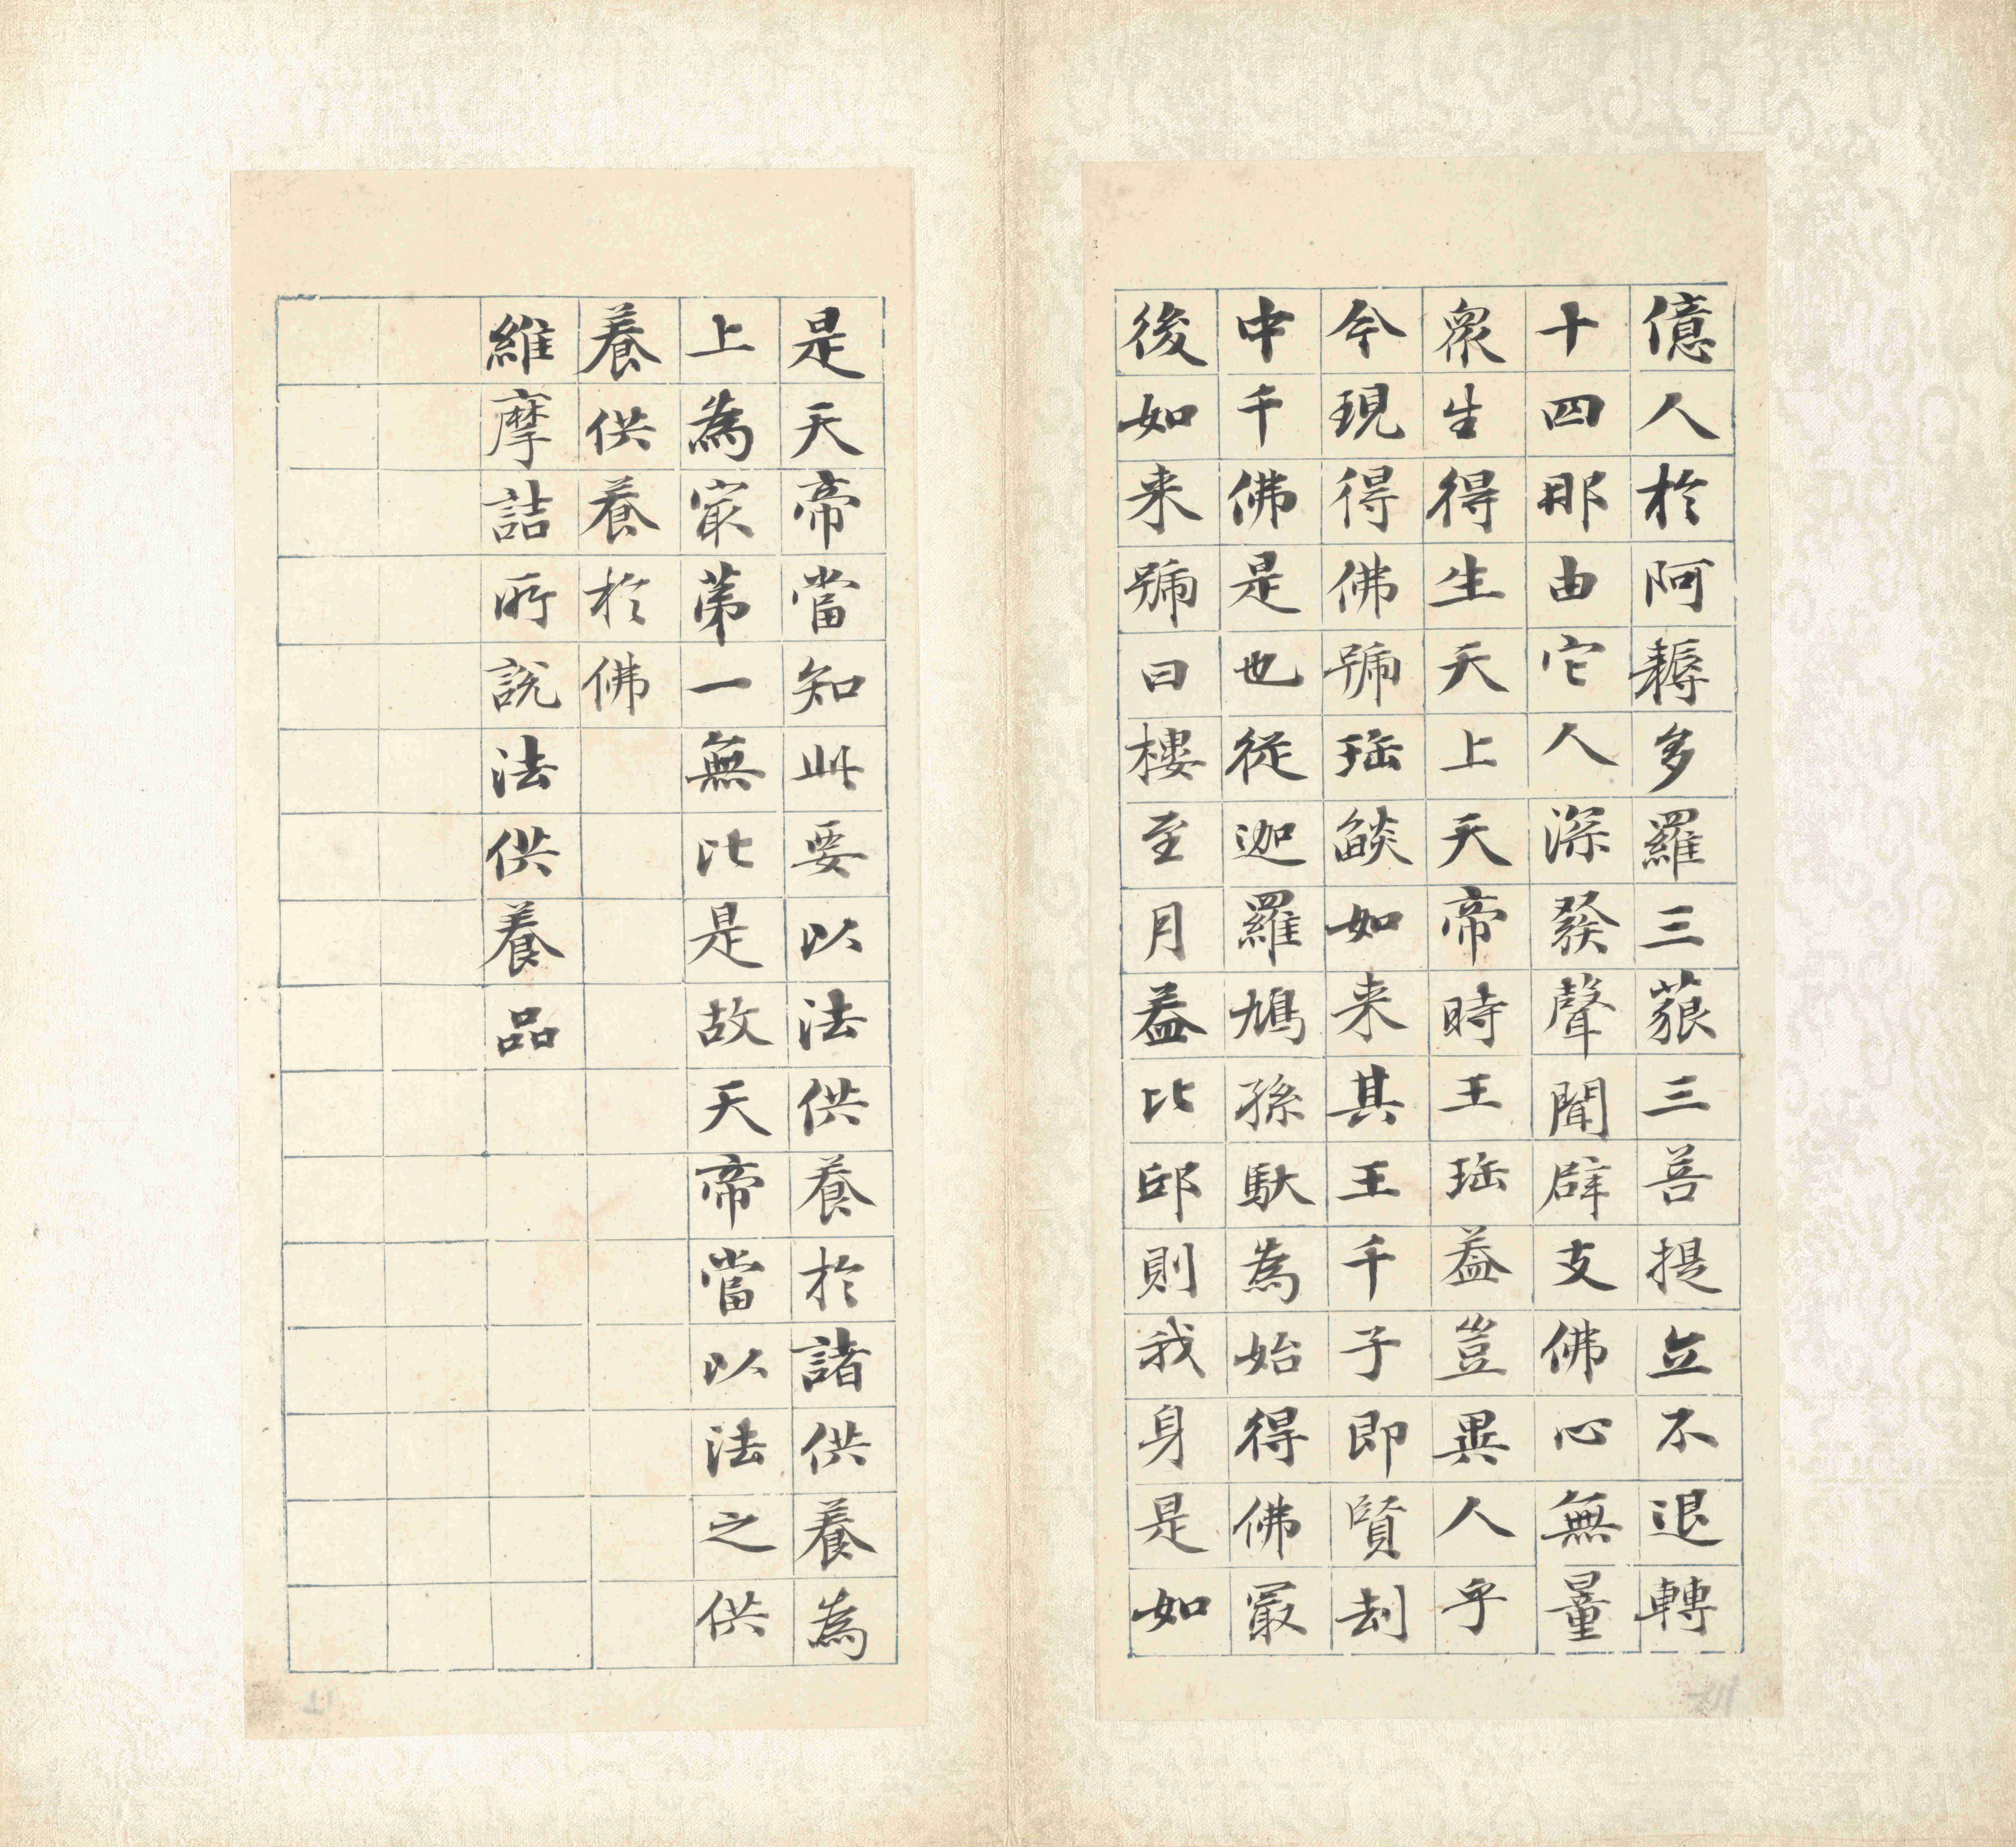 億人於阿耨多羅三藐三菩提立不退轉
十四那由它人深發聲聞辟支佛心無量
衆生得生天上天帝時王珤葢豈異人乎
今現得佛號珤燄如来其王千子即賢劫
中千佛是也從迦羅鳩孫馱為始得佛冣
後如来號曰樓至月葢比邱則我身是如
是天帝當知此要以法供養於諸供養為
上為冣苐一無比是故天帝當以法之供
養供養於佛
維摩詰所說法供養品